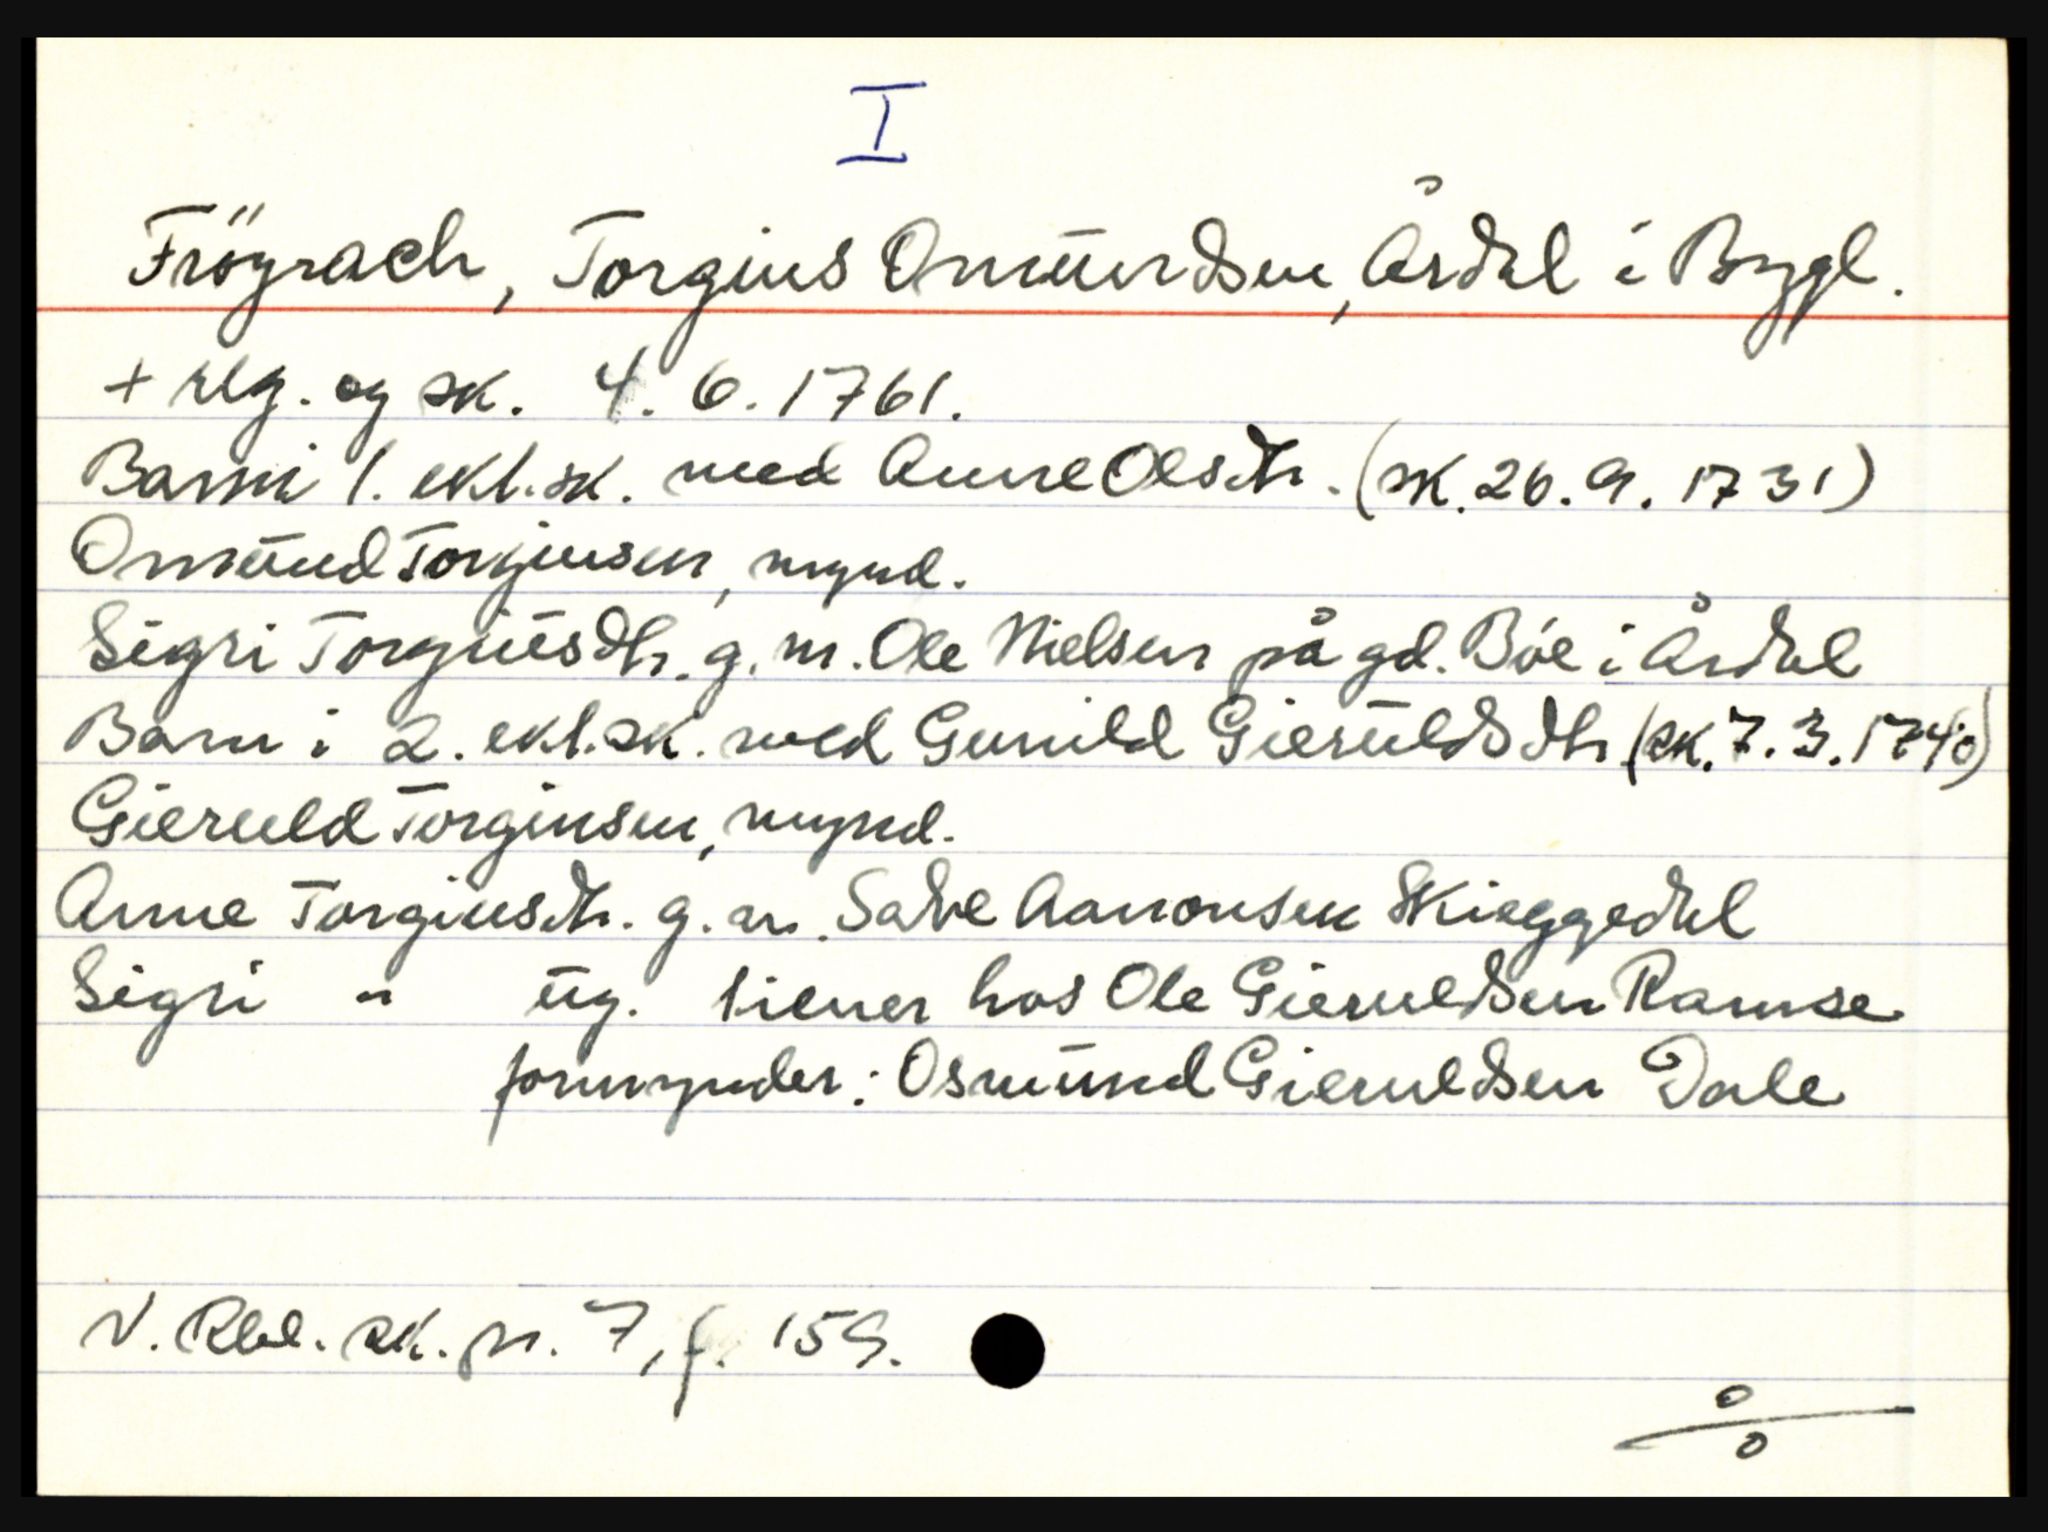 I
Fröyrach, Torgius Omundsen, Årdal i Bygl.
+ reg. og sk. 4. 6. 1761.
Barn i 1. ekt.sk. med Anne Olsdtr. (sk. 26. 9. 1731)
Omund Torgiusen, mynd.
Sigri Torgiusdtr. g. m. Ole Nielsen på gd. Böe i Årdal
Barn i 2. ekt.sk. med Gunild Gieruldsdtr (sk. 7. 3. 1740)
Gieruld Torgiusen, mynd.
Anne Torgiusdtr. g. m. Salve Aanonsen Skieggedal
Sigri " ug. tiener hos Ole Gieruldsen Ramse
formynder: Osmund Gieruldsen Dale
N. Rbl. sk. pr. 7, f. 159.